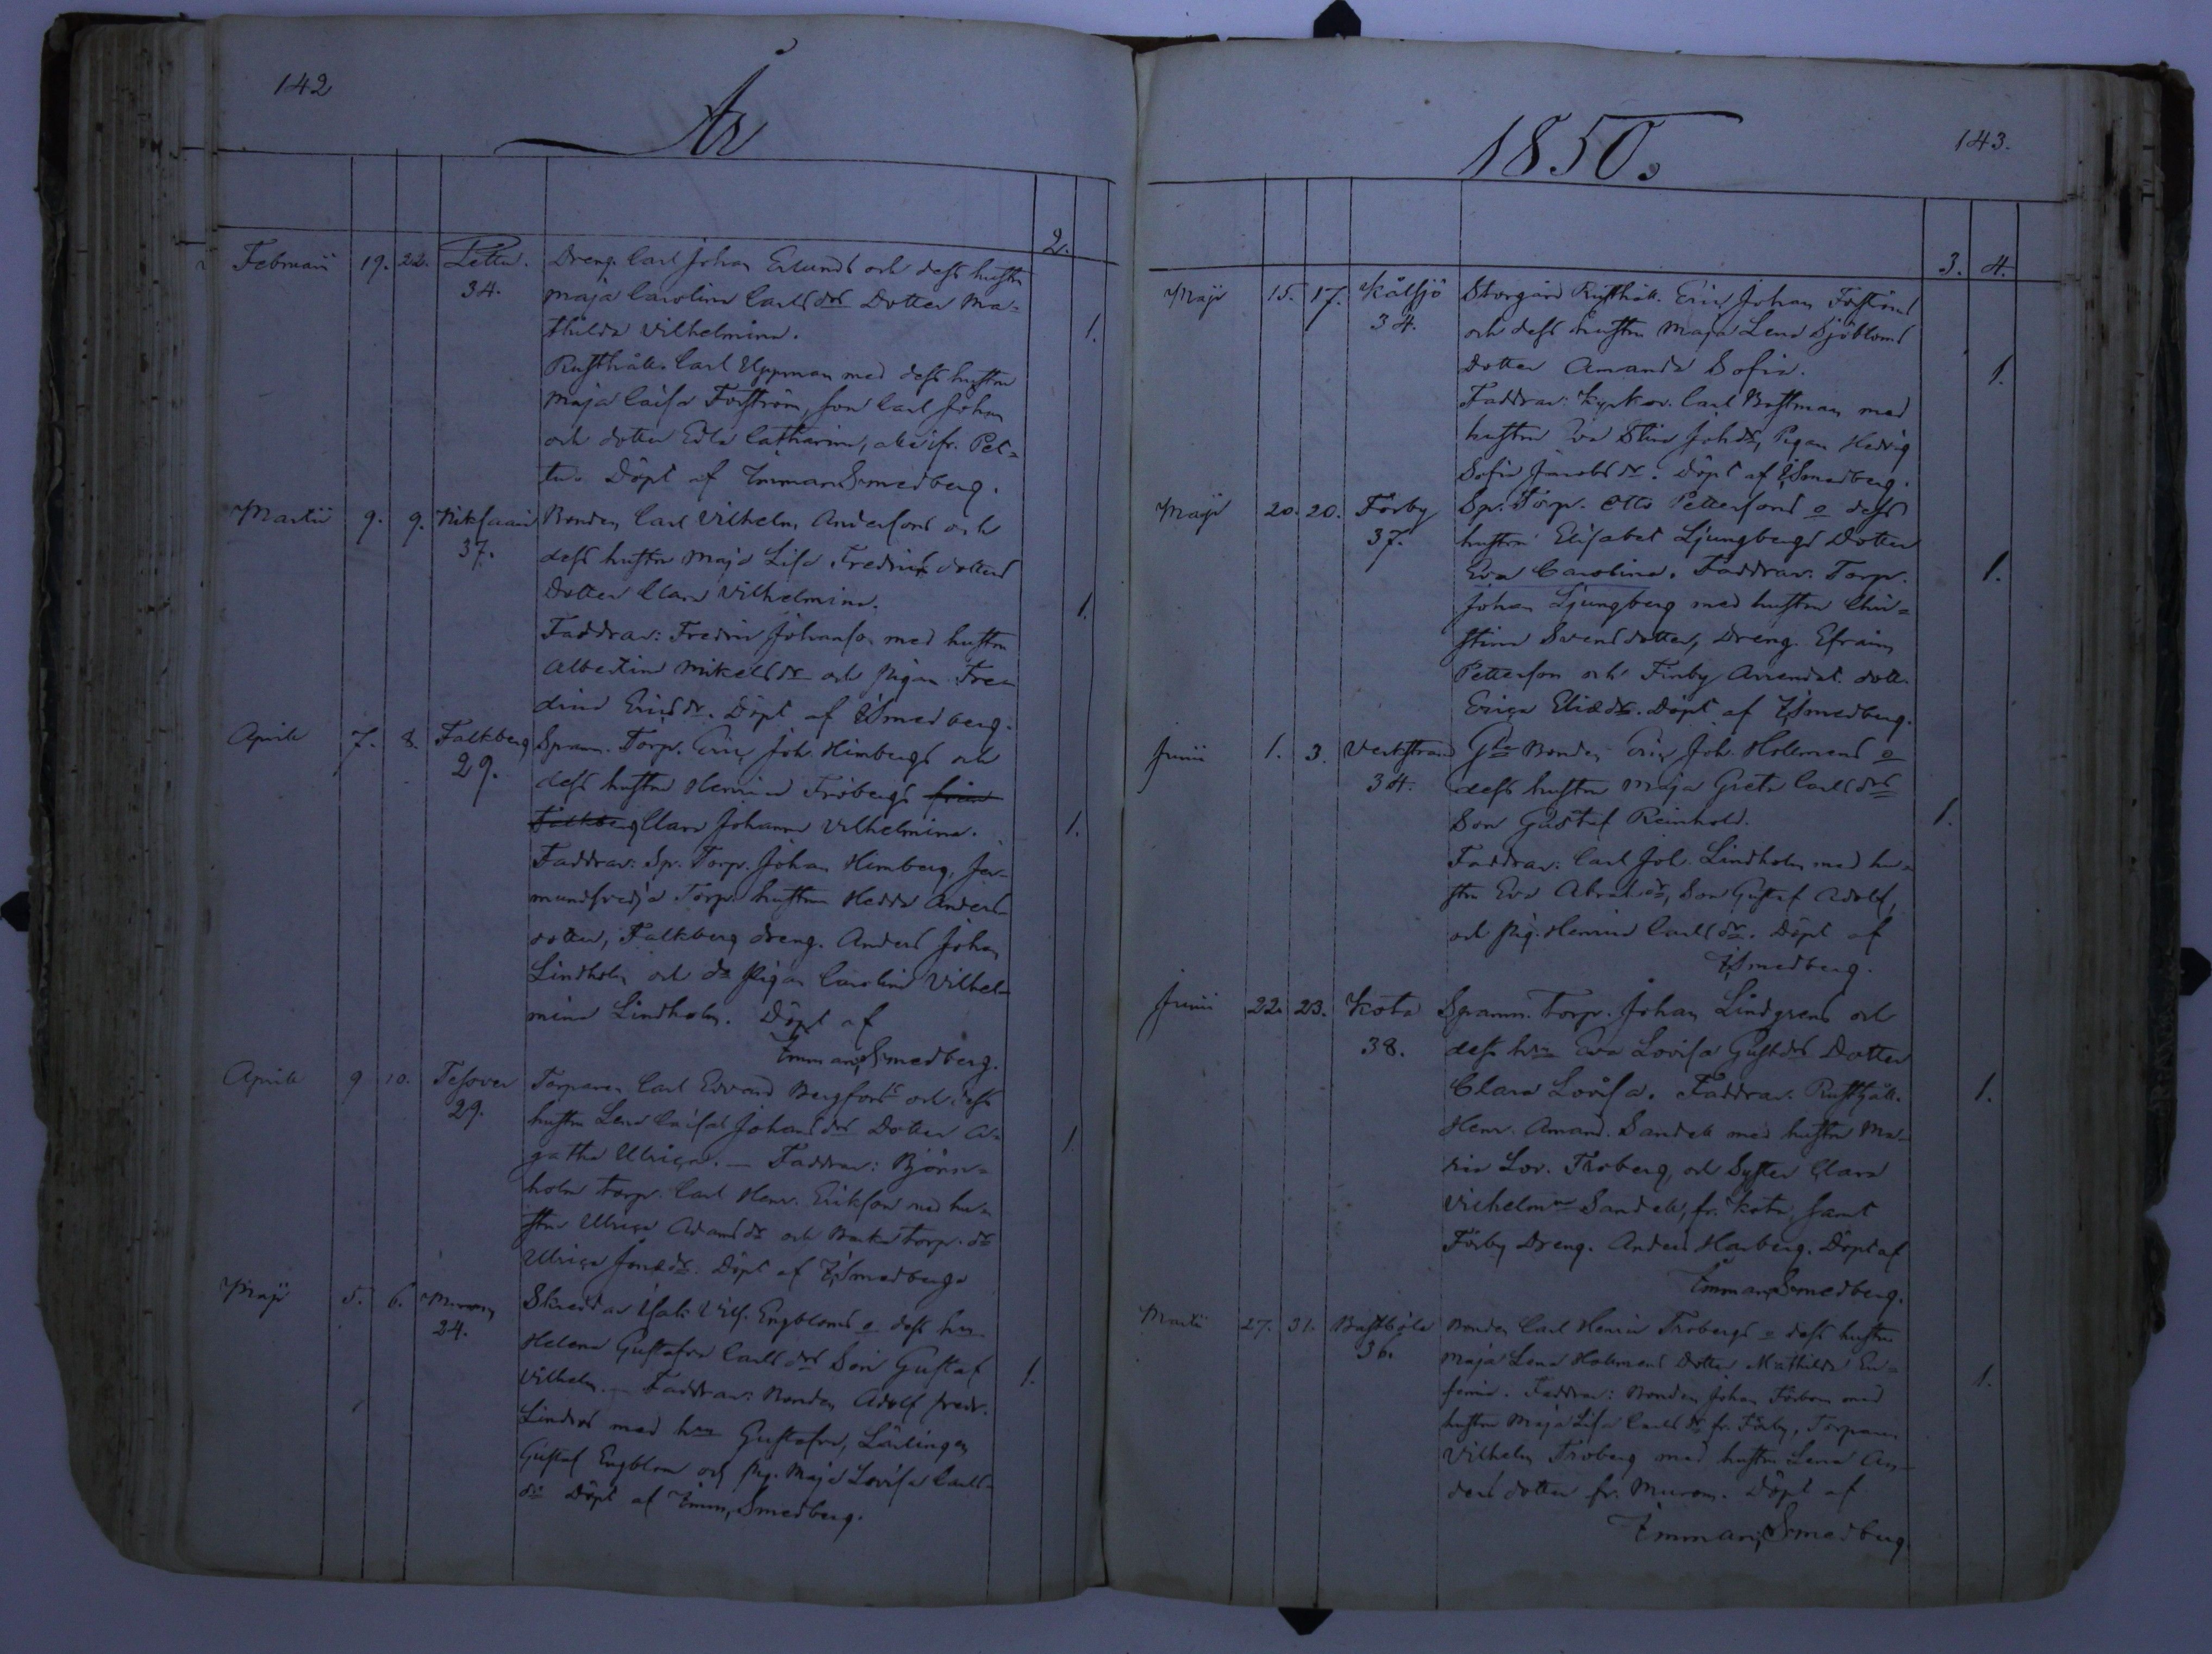 142
År
2.
Februarii 19. 22. Pettu. Dreng. Carl Johan Erlunds och dess hustru
34. Maja Carolina Carlsdrs Dotter Ma=
thilda Vilhelmina. 1.
Rusthålln. Carl Uppman med dess hustru
Maja Caisa Forsström, son Carl Johan
och dotter Edla Catharina, alla fr. Pet=
tu. Döpt af Emman. Smedberg.
Martii 9. 9. Bonden Carl Vilhelm Andersons och
37. dess hustru Maja Lisa Fredriks dotters
Dotter Clara Vilhelmina. 1.
Faddrar: Fredric Johanson med hustru
Albertina Mikelsdr och pigan Fre=
drica Ericsdr. Döpt af E. Smedberg.
Aprils 7. 8. Falkberg Spann. Torp. Eric Joh. Himbergs och
29. dess hustru Henrica Fröbergs från
Falkberg Clara Johanna Vilhelmina. 1.
Faddrar: Sp. Torp. Johan Himberg,
Torp. hustrun Hedda Anders=
dotter, Falkberg dreng. Anders Johan
Lindholm och do Pigan Carolina Vilhel=
mina Lindholm. Döpt af
Emman. Smedberg.
Aprils 9 10. Tesover Torparen Carl Edvard Bergfors och dess
29. hustru Lena Caisa Johansdrs Dotter A= 1
gatha Ulrica. — Faddrar: Björn=
holm torp. Carl Henr. Erikson med hu=
stru Ulrica Adamsdr och Backa torp. dr
Ulrica Jonsdr. Döpt af E. Smedberg
Maji 5. 6. Skreddar Isak Vilh. Engbloms o dess hu.
24. Helena Gustafva Carlsdrs Son Gustaf 1.
Vilhelm. — Faddrar: Bonden Adolf Fredr.
Lindros med hru Gustafva, Lärlingen
Gustaf Engblom och pig. Maja Lovisa Carls=
dr Döpt af Emm. Smedberg.
1850.
143.
3. 4.
Maji 15. 17. Kålsjö Storgård Rusthåll. Eric Johan Forsströms
34. och dess hustru Maja Lena Sjöbloms
Dotter Amanda Sofia. 1.
Faddrar: Kyrkov. Carl Bastman med
hustru Eva Stina Johsdr, Pigan Hedvig
Sofia Jacobsdr. Döpt af E. Smedberg.
Maji 20. 20. Förby Sp. Torp. Otto Pettersons o dess
37. hustru Elisabet Ljungbergs Dotter
Eva Carolina. Faddrar: Torp. 1.
Johan Ljungberg med hustru Chri=
stina Svensdotter, Dreng. Efraim
Petterson och Finby Arrendat. dott.
Erica Eliædr. Döpt af E. Smedberg.
Junii 1. 3. Verkstrand Gla Bonden Eric Joh. Holmens o
34. dess hustru Maja Greta Carlsdrs
Son Gustaf Reinhold. 1.
Faddrar: Carl Joh. Lindholm med hu=
stru Eva Abrah.dr, Son Gustaf Adolf,
och Pig. Henrica Carlsdr. Döpt af
E. Smedberg.
Junii 22. 23. Kota Spann. Torp. Johan Lindgrens och
38. dess hru Eva Lovisa Gustdrs Dotter
Clara Lovisa. Faddrar. Rusthåll. 1.
Henr. Amand. Sandell med hustru Ma=
ria Lov. Troberg, och Syster Clara
Vilhelmna Sandell, fr. Kota, samt
Förby Dreng. Anders Harberg. Döpt af
Emman. Smedberg.
Martii 27. 31. Bastböle Bonden Carl Henric Trobergs o dess hustru
36. Maja Lena Holmens Dotter Mathilda Eu=
femia. Faddrar: Bonden Johan Förbom med 1.
hustru Maja Lisa Carlsdr fr. Förby, Torparen
Vilhelm Troberg med hustru Lena An=
ders dotter fr. Murom. Döpt af
Emman. Smedberg.